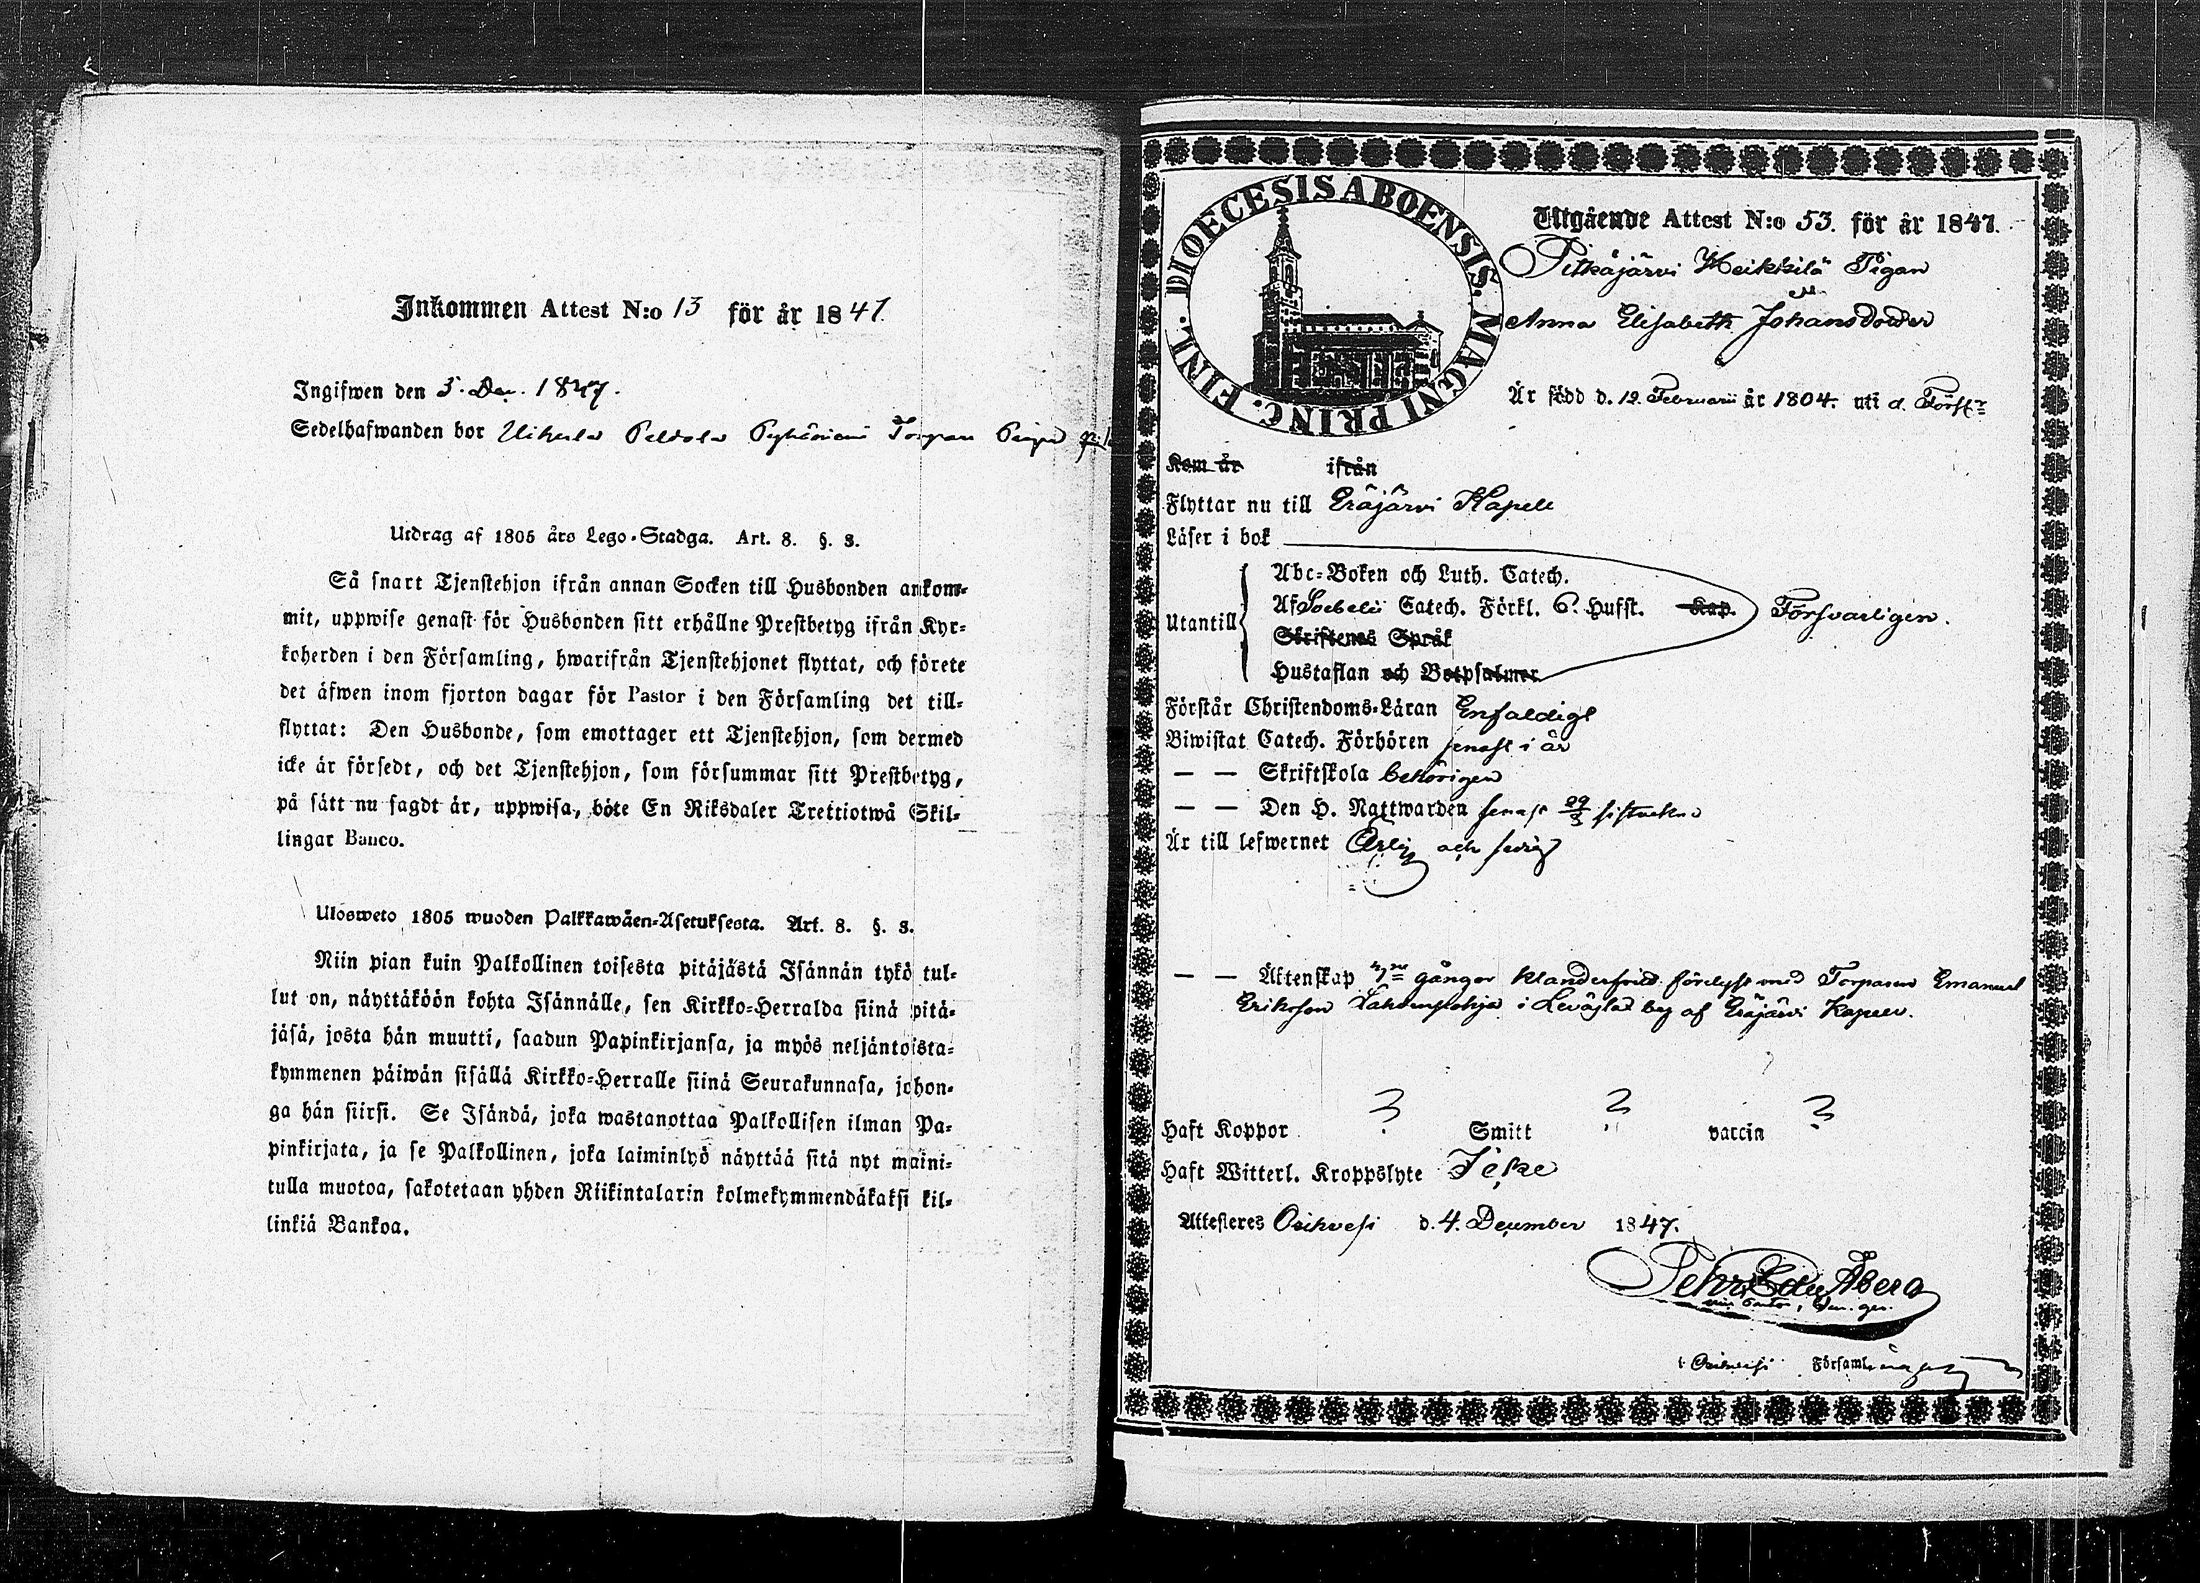 Inkommen Attest N:o 13 för år 1847
Ingifwen den 5. Dec. 1847.
Sedelhafwanden bor Uiherla Peltola
Utdrag af 1805 års Lego-Stadga. Art. 8. §. 3.
Så snart Tjenstehjon ifrån annan Socken till Husbonden ankom-
mit, uppwise genast för Husbonden sitt erhållne Prestbetyg ifrån Kyr-
koherden i den Församling, hwarifrån Tjenstehjonet flyttat, och förete
det äfwen inom fjorton dagar för Pastor i den Församling det till-
flyttat: Den Husbonde, som emottager ett Tjenstehjon, som dermed
icke är försedt, och det Tjenstehjon, som försummar sitt Prestbetyg,
på sätt nu sagdt är, uppwisa, böte En Riksdaler Trettiotwå Skil-
lingar Banco.
Ulosweto 1805 wuoden Palkkawäen-Asetuksesta. Art. 8. §. 3.
Niin pian kuin Palkollinen toisesta pitäjästä Isännän tykö tul-
lut on, näyttäköön kohta Isännälle, sen Kirkko-Herralda siinä pitä-
jäsä, josta hän muutti, saadun Papinkirjansa, ja myös neljäntoista-
kymmenen päiwän sisällä Kirkko-Herralle siinä Seurakunnasa, johon-
ga hän siirsi. Se Isändä, joka wastanottaa Palkollisen ilman Pa-
pinkirjata, ja se Palkollinen, joka laiminlyö näyttää sitä nyt maini-
tulla muotoa, sakotetaan yhden Riikintalarin kolmekymmendäkaksi kil-
linkiä Bankoa.
DIOECESIS ABOENSIS. MAGNI PRINC. FINL.
Utgående Attest N:o 53. för år 1847.
Pitkäjärvi Heikkilä Pigan
Anna Elisabeth Johansdotter
Är född d. 12. Februarii år 1804. uti d. Förs:
Kom år ifrån
Flyttar nu till Eräjärvi Kapell
Läser i bok
Abc-Boken och Luth. Catech.
Utantill Af Soebelii Catech. Förkl. 6. Hufst. Kap. Försvarligen.
Skriftenes Språk
Hustaflan och Botpsalmer
Förstår Christendoms-Läran Enfaldigt
Biwistat Catech. Förhören senast i år
— — Skriftskola behörigen
— — Den H. Nattwarden senast 29/3 sistvekne
Är till lefwernet Ärlig och sedig
— — Äktenskap gånger klanderfritt förelyst med Torparen Emanuel
Eriksson i by af Eräjärvi Kapell.
Haft Koppor ? Smitt ? vaccin ?
Haft Witterl. Kroppslyte Icke
Attesteres Orihvesi d. 4. December 1847.
Pehr Edv Åberg
i Orihvesi Församling